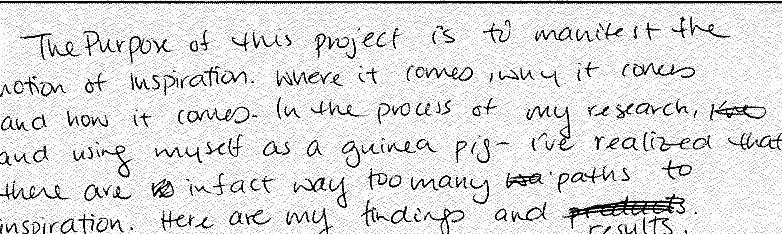 The Purpose of this project is to manifest the
notion of Inspiration. Where it comes, why it comes
and how it comes. In the process of my research,
and using myself as a guinea pig- I've realized that
there are infact way too many paths to
inspiration. Here are my findings and products.
results.